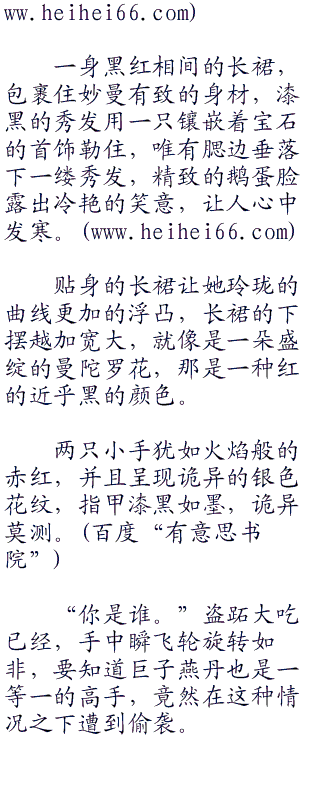 ww.heihei66.com)
一身黑红相间的长裙，
包裹住妙曼有致的身材，漆
黑的秀发用一只镶嵌着宝石
的首饰勒住，唯有腮边垂落
下一缕秀发，精致的鹅蛋脸
露出冷艳的笑意，让人心中
发寒。(www.heihei66.com)
贴身的长裙让她玲珑的
曲线更加的浮凸，长裙的下
摆越加宽大，就像是一朵盛
绽的曼陀罗花，那是一种红
的近乎黑的颜色。
两只小手犹如火焰般的
赤红，并且呈现诡异的银色
花纹，指甲漆黑如墨，诡异
莫测。(百度“有意思书
院”)
“你是谁。”盗跖大吃
已经，手中瞬飞轮旋转如
非，要知道巨子燕丹也是一
等一的高手，竟然在这种情
况之下遭到偷袭。